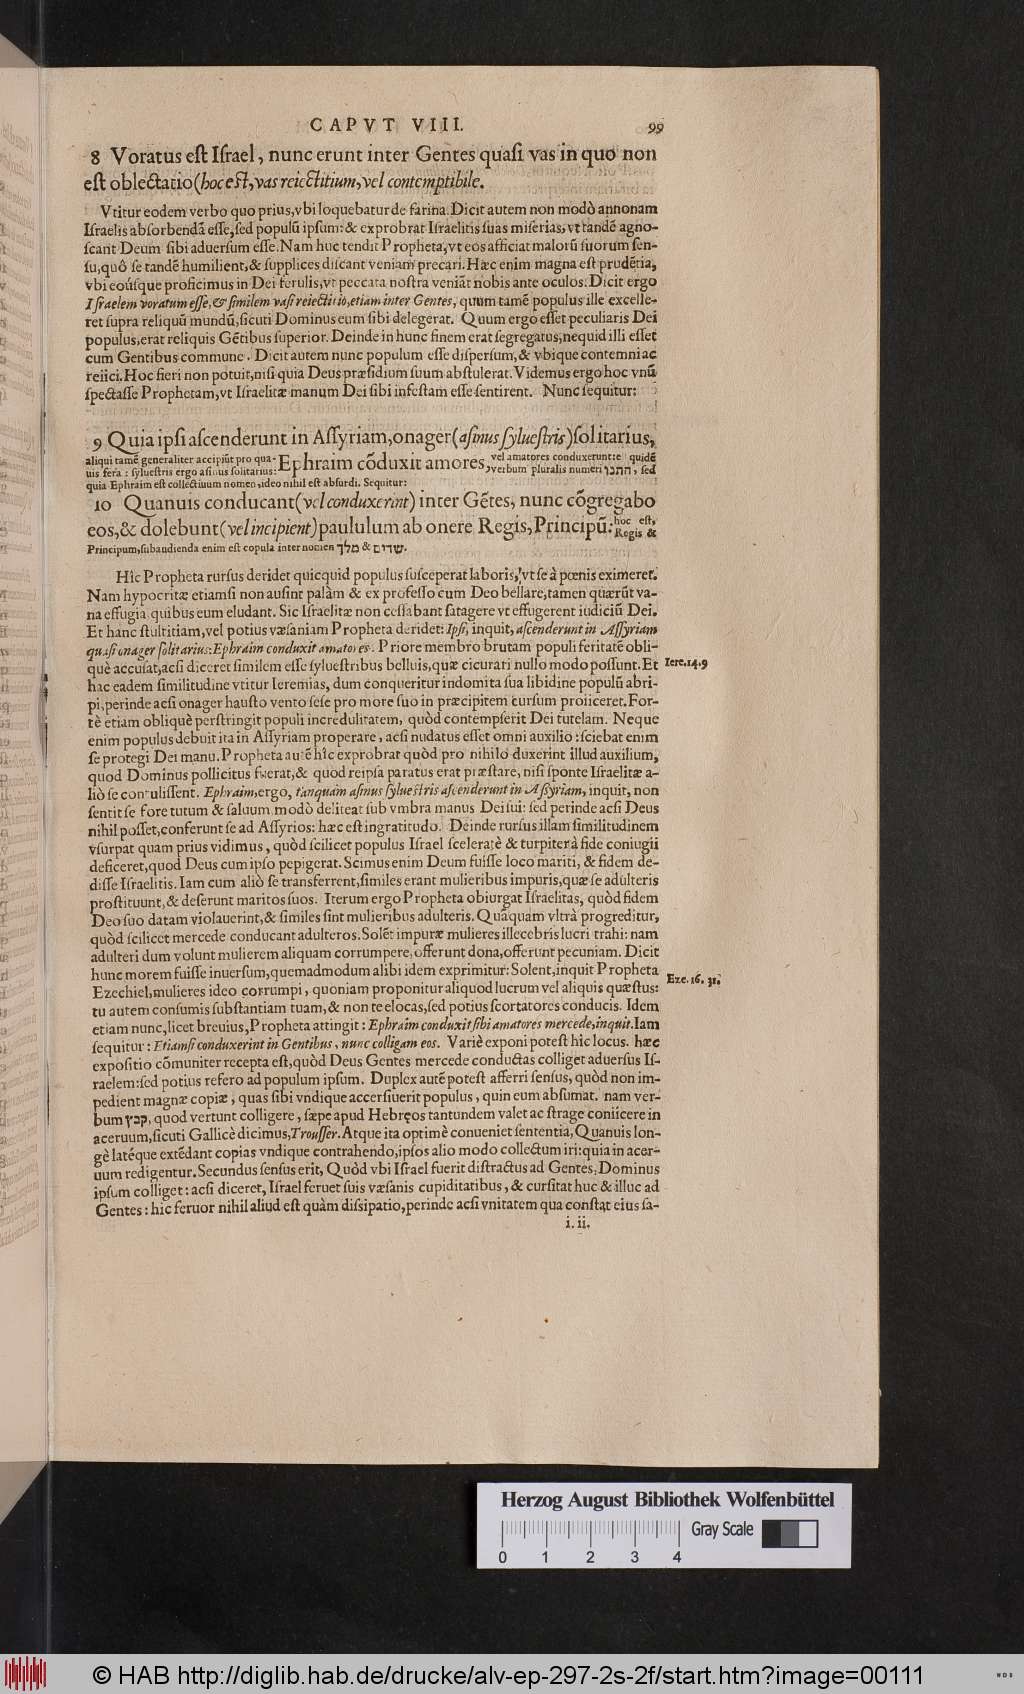 CAPVT VIII. 99
8 Voratus est Israel, nunc erunt inter Gentes quasi vas in quo non
est oblectatio (hoc est, vas reiectitium, vel contemptibile.
Vtitur eodem verbo quo prius, vbi loquebatur de farina. Dicit autem non modò annonam
Israelis absorbendā esse, sed populū ipsum: & exprobrat Israelitis suas miserias, vt tandē agno-
scant Deum sibi aduersum esse. Nam huc tendit Propheta, vt eos afficiat malorū suorum sen-
su, quô se tandē humilient, & supplices discant veniam precari. Hæc enim magna est prudētia,
vbi eoúsque proficimus in Dei ferulis, vt peccata nostra veniāt nobis ante oculos. Dicit ergo
Israelem voratum esse, & similem vasi reiectitio, etiam inter Gentes, quum tamē populus ille excelle-
ret supra reliquū mundū, sicuti Dominus eum sibi delegerat. Quum ergo esset peculiaris Dei
populus, erat reliquis Gētibus superior. Deinde in hunc finem erat segregatus, nequid illi esset
cum Gentibus commune. Dicit autem nunc populum esse dispersum, & vbique contemni ac
reiici. Hoc fieri non potuit, nisi quia Deus præsidium suum abstulerat. Videmus ergo hoc vnū
spectasse Prophetam, vt Israelitæ manum Dei sibi infestam esse sentirent. Nunc sequitur:
9 Quia ipsi ascenderunt in Assyriam, onager (asinus syluestris) solitarius,
aliqui tamē generaliter accipiūt pro qua-
uis fera: syluestris ergo asinus solitarius: Ephraim cōduxit amores, vel amatores conduxerunt: quidē
verbum pluralis numeri התנו, sed
quia Ephraim est collectiuum nomen, ideo nihil est absurdi. Sequitur:
10 Quanuis conducant (vel conduxerint) inter Gētes, nunc cōgregabo
eos, & dolebunt (vel incipient) paululum ab onere Regis, Principū: hoc est,
Regis &
Principum, subaudienda enim est copula inter nomen מלך & שרים.
Hîc Propheta rursus deridet quicquid populus susceperat laboris, vt se à pœnis eximeret.
Nam hypocritæ etiamsi non ausint palàm & ex professo cum Deo bellare, tamen quærūt va-
na effugia quibus eum eludant. Sic Israelitæ non cessabant satagere vt effugerent iudiciū Dei.
Et hanc stultitiam, vel potius væsaniam Propheta deridet: Ipsi, inquit, ascenderunt in Assyriam
quasi onager solitarius: Ephraim conduxit amatores. Priore membro brutam populi feritatē obli-
què accusat, acsi diceret similem esse syluestribus belluis, quæ cicurati nullo modo possunt. Et Iere. 14. 9
hac eadem similitudine vtitur Ieremias, dum conqueritur indomita sua libidine populū abri-
pi, perinde acsi onager hausto vento sese pro more suo in præcipitem cursum proiiceret. For-
tè etiam obliquè perstringit populi incredulitatem, quòd contempserit Dei tutelam. Neque
enim populus debuit ita in Assyriam properare, acsi nudatus esset omni auxilio: sciebat enim
se protegi Dei manu. Propheta autē hîc exprobrat quòd pro nihilo duxerint illud auxilium,
quod Dominus pollicitus fuerat, & quod reipsa paratus erat præstare, nisi sponte Israelitæ a-
liò se contulissent. Ephraim, ergo, tanquam asinus syluestris ascenderunt in Assyriam, inquit, non
sentit se fore tutum & saluum modò deliteat sub vmbra manus Dei sui: sed perinde acsi Deus
nihil posset, conferunt se ad Assyrios: hæc est ingratitudo. Deinde rursus illam similitudinem
vsurpat quam prius vidimus, quòd scilicet populus Israel sceleratè & turpiter à fide coniugii
deficeret, quod Deus cum ipso pepigerat. Scimus enim Deum fuisse loco mariti, & fidem de-
disse Israelitis. Iam cum aliò se transferrent, similes erant mulieribus impuris, quæ se adulteris
prostituunt, & deserunt maritos suos. Iterum ergo Propheta obiurgat Israelitas, quòd fidem
Deo suo datam violauerint, & similes sint mulieribus adulteris. Quāquam vltrà progreditur,
quòd scilicet mercede conducant adulteros. Solēt impuræ mulieres illecebris lucri trahi: nam
adulteri dum volunt mulierem aliquam corrumpere, offerunt dona, offerunt pecuniam. Dicit
hunc morem fuisse inuersum, quemadmodum alibi idem exprimitur: Solent, inquit Propheta
Ezechiel, mulieres ideo corrumpi, quoniam proponitur aliquod lucrum vel aliquis quæstus: Eze. 16. 31.
tu autem consumis substantiam tuam, & non te elocas, sed potius scortatores conducis. Idem
etiam nunc, licet breuius, Propheta attingit: Ephraim conduxit sibi amatores mercede, inquit. Iam
sequitur: Etiamsi conduxerint in Gentibus, nunc colligam eos. Variè exponi potest hic locus. hæc
expositio cōmuniter recepta est, quòd Deus Gentes mercede conductas colliget aduersus Is-
raelem: sed potius refero ad populum ipsum. Duplex autē potest afferri sensus, quòd non im-
pedient magnæ copiæ, quas sibi vndique accersiuerit populus, quin eum absumat. nam ver-
bum קבץ, quod vertunt colligere, sæpe apud Hebręos tantundem valet ac strage coniicere in
aceruum, sicuti Gallicè dicimus, Trousser. Atque ita optimè conueniet sententia, Quanuis lon-
gè latéque extēdant copias vndique contrahendo, ipsos alio modo collectum iri: quia in acer-
uum redigentur. Secundus sensus erit, Quòd vbi Israel fuerit distractus ad Gentes, Dominus
ipsum colliget: acsi diceret, Israel feruet suis væsanis cupiditatibus, & cursitat huc & illuc ad
Gentes: hic feruor nihil aliud est quàm dissipatio, perinde acsi vnitatem qua constat eius sa-
i. ii.
Herzog August Bibliothek Wolfenbüttel
Gray Scale
0 1 2 3 4
© HAB http://diglib.hab.de/drucke/alv-ep-297-2s-2f/start.htm?image=00111